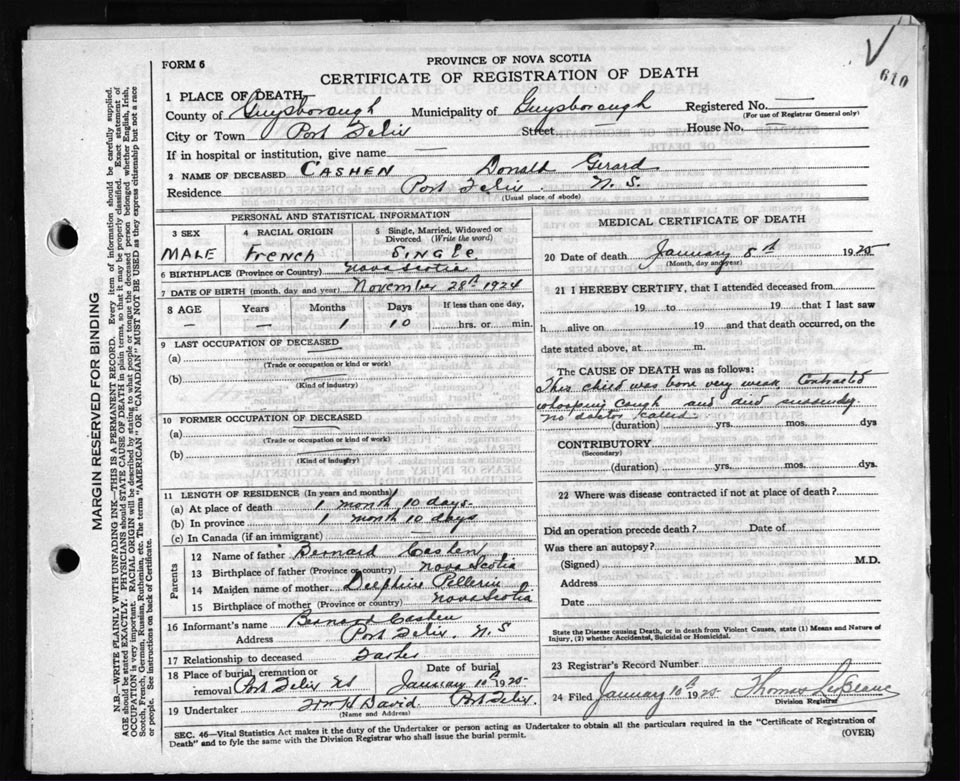 610
FORM 6
PROVINCE OF NOVA SCOTIA
CERTIFICATE OF REGISTRATION OF DEATH
1 PLACE OF DEATH—
County of Guysborough Municipality of Guysborough Registered No. —
(For use of Registrar General only)
City or Town Port Felix Street — House No. —
If in hospital or institution, give name —
2 NAME OF DECEASED CASHEN Donald Gerard
Residence Port Felix N. S.
(Usual place of abode)
PERSONAL AND STATISTICAL INFORMATION
3 SEX 4 RACIAL ORIGIN 5 Single, Married, Widowed or Divorced (Write the word)
MALE French SINGLE
6 BIRTHPLACE (Province or Country) Nova Scotia
7 DATE OF BIRTH (month, day and year) November 28th 1924
8 AGE Years Months Days If less than one day,
— — 1 10 hrs. or min.
9 LAST OCCUPATION OF DECEASED
(a) —
(Trade or occupation or kind of work)
(b) —
(Kind of industry)
10 FORMER OCCUPATION OF DECEASED
(a)
(Trade or occupation or kind of work)
(b)
(Kind of industry)
11 LENGTH OF RESIDENCE (In years and months)
(a) At place of death 1 month 10 days
(b) In province 1 month 10 days
(c) In Canada (if an immigrant)
Parents
12 Name of father Bernard Cashen
13 Birthplace of father (Province or country) Nova Scotia
14 Maiden name of mother Delphine Pellerin
15 Birthplace of mother (Province or country) Nova Scotia
16 Informant's name Bernard Cashen
Address Port Felix. N. S
17 Relationship to deceased Father
18 Place of burial cremation or removal Port Felix NS Date of burial January 10th 1925
19 Undertaker Wm H David Port Felix
(Name and Address)
MEDICAL CERTIFICATE OF DEATH
20 Date of death January 8th 1925
(Month, day and year)
21 I HEREBY CERTIFY, that I attended deceased from
19 to 19 that I last saw
h alive on 19 and that death occurred, on the
date stated above, at m.
The CAUSE OF DEATH was as follows:
This child was born very weak Contracted
whooping cough and died suddenly.
No doktor called.
(duration) yrs. mos. dys
CONTRIBUTORY
(Secondary)
(duration) yrs. mos. dys.
22 Where was disease contracted if not at place of death?
Did an operation precede death? Date of
Was there an autopsy?
(Signed) M.D.
Address
Date
State the Disease causing Death, or in death from Violent Causes, state (1) Means and Nature of
Injury, (2) whether Accidental, Suicidal or Homicidal.
23 Registrar's Record Number
24 Filed January 10th 1925 Thomas LeBlanc
Division Registrar
SEC. 46—Vital Statistics Act makes it the duty of the Undertaker or person acting as Undertaker to obtain all the particulars required in the "Certificate of Registration of
Death" and to fyle the same with the Division Registrar who shall issue the burial permit. (OVER)
MARGIN RESERVED FOR BINDING
N.B.—WRITE PLAINLY WITH UNFADING INK—THIS IS A PERMANENT RECORD. Every item of information should be carefully supplied.
AGE should be stated EXACTLY. PHYSICIANS should STATE CAUSE OF DEATH in plain terms, so that it may be properly classified. Exact statement of
OCCUPATION is very important. RACIAL ORIGIN will be described by stating to what people or tongue the deceased person belonged whether English, Irish,
Scotch, French, German, Russian, Ruthenian, etc. The terms "AMERICAN" or "CANADIAN" MUST NOT BE USED as they express citizenship but not a race
or people. See instructions on back of Certificate.